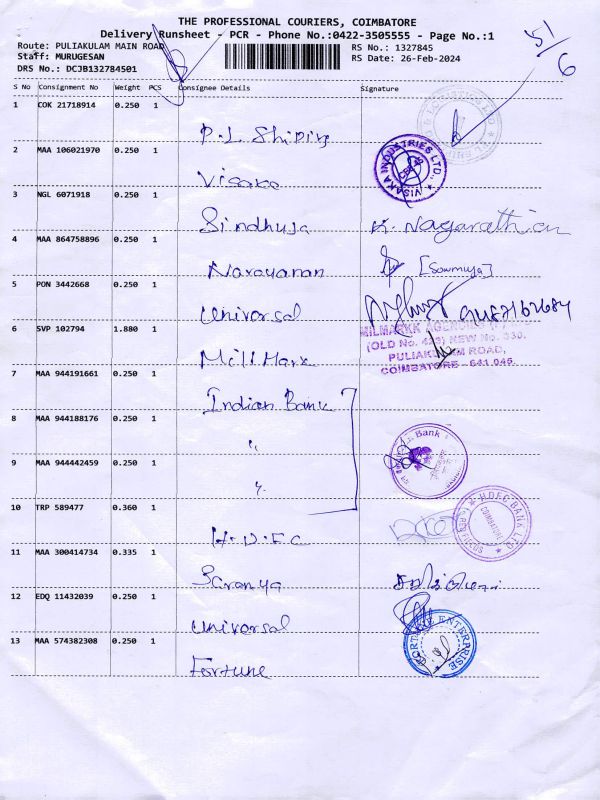 THE PROFESSIONAL COURIERS, COIMBATORE
Delivery Runsheet - PCR - Phone No.:0422-3505555 - Page No.:1
Route: PULIAKULAM MAIN ROAD
RS No.: 1327845
51/6
Staff: MURUGESAN
RS Date: 26-Feb-2024
DRS No.: DCJB132784501
S No Consignment No Weight PCS Consignee Details Signature
1 COK 21718914 0.250 1
P.L Shiping
2 MAA 106021970 0.250 1
Visaka VISAKA INDUSTRIES LTD.
3 NGL 6071918 0.250 1
Sindhuja K. Nagarathian
4 MAA 864758896 0.250 1
Narayanan [Sowmiya]
5 PON 3442668 0.250 1
Universal
6 SVP 102794 1.880 1
Mill Mark
MILMARKK AGENCIES
(OLD No. 423) NEW No. 330,
PULIAKULAM ROAD,
COIMBATORE - 641 045.
7 MAA 944191661 0.250 1
Indian Bank
8 MAA 944188176 0.250 1
"
Bank
9 MAA 944442459 0.250 1
"
10 TRP 589477 0.360 1
H.D.F.C HDFC BANK LTD COIMBATORE
11 MAA 300414734 0.335 1
Saranya
12 EDQ 11432039 0.250 1
Universal
13 MAA 574382308 0.250 1
Fortune FORTUNE ENTERPRISE